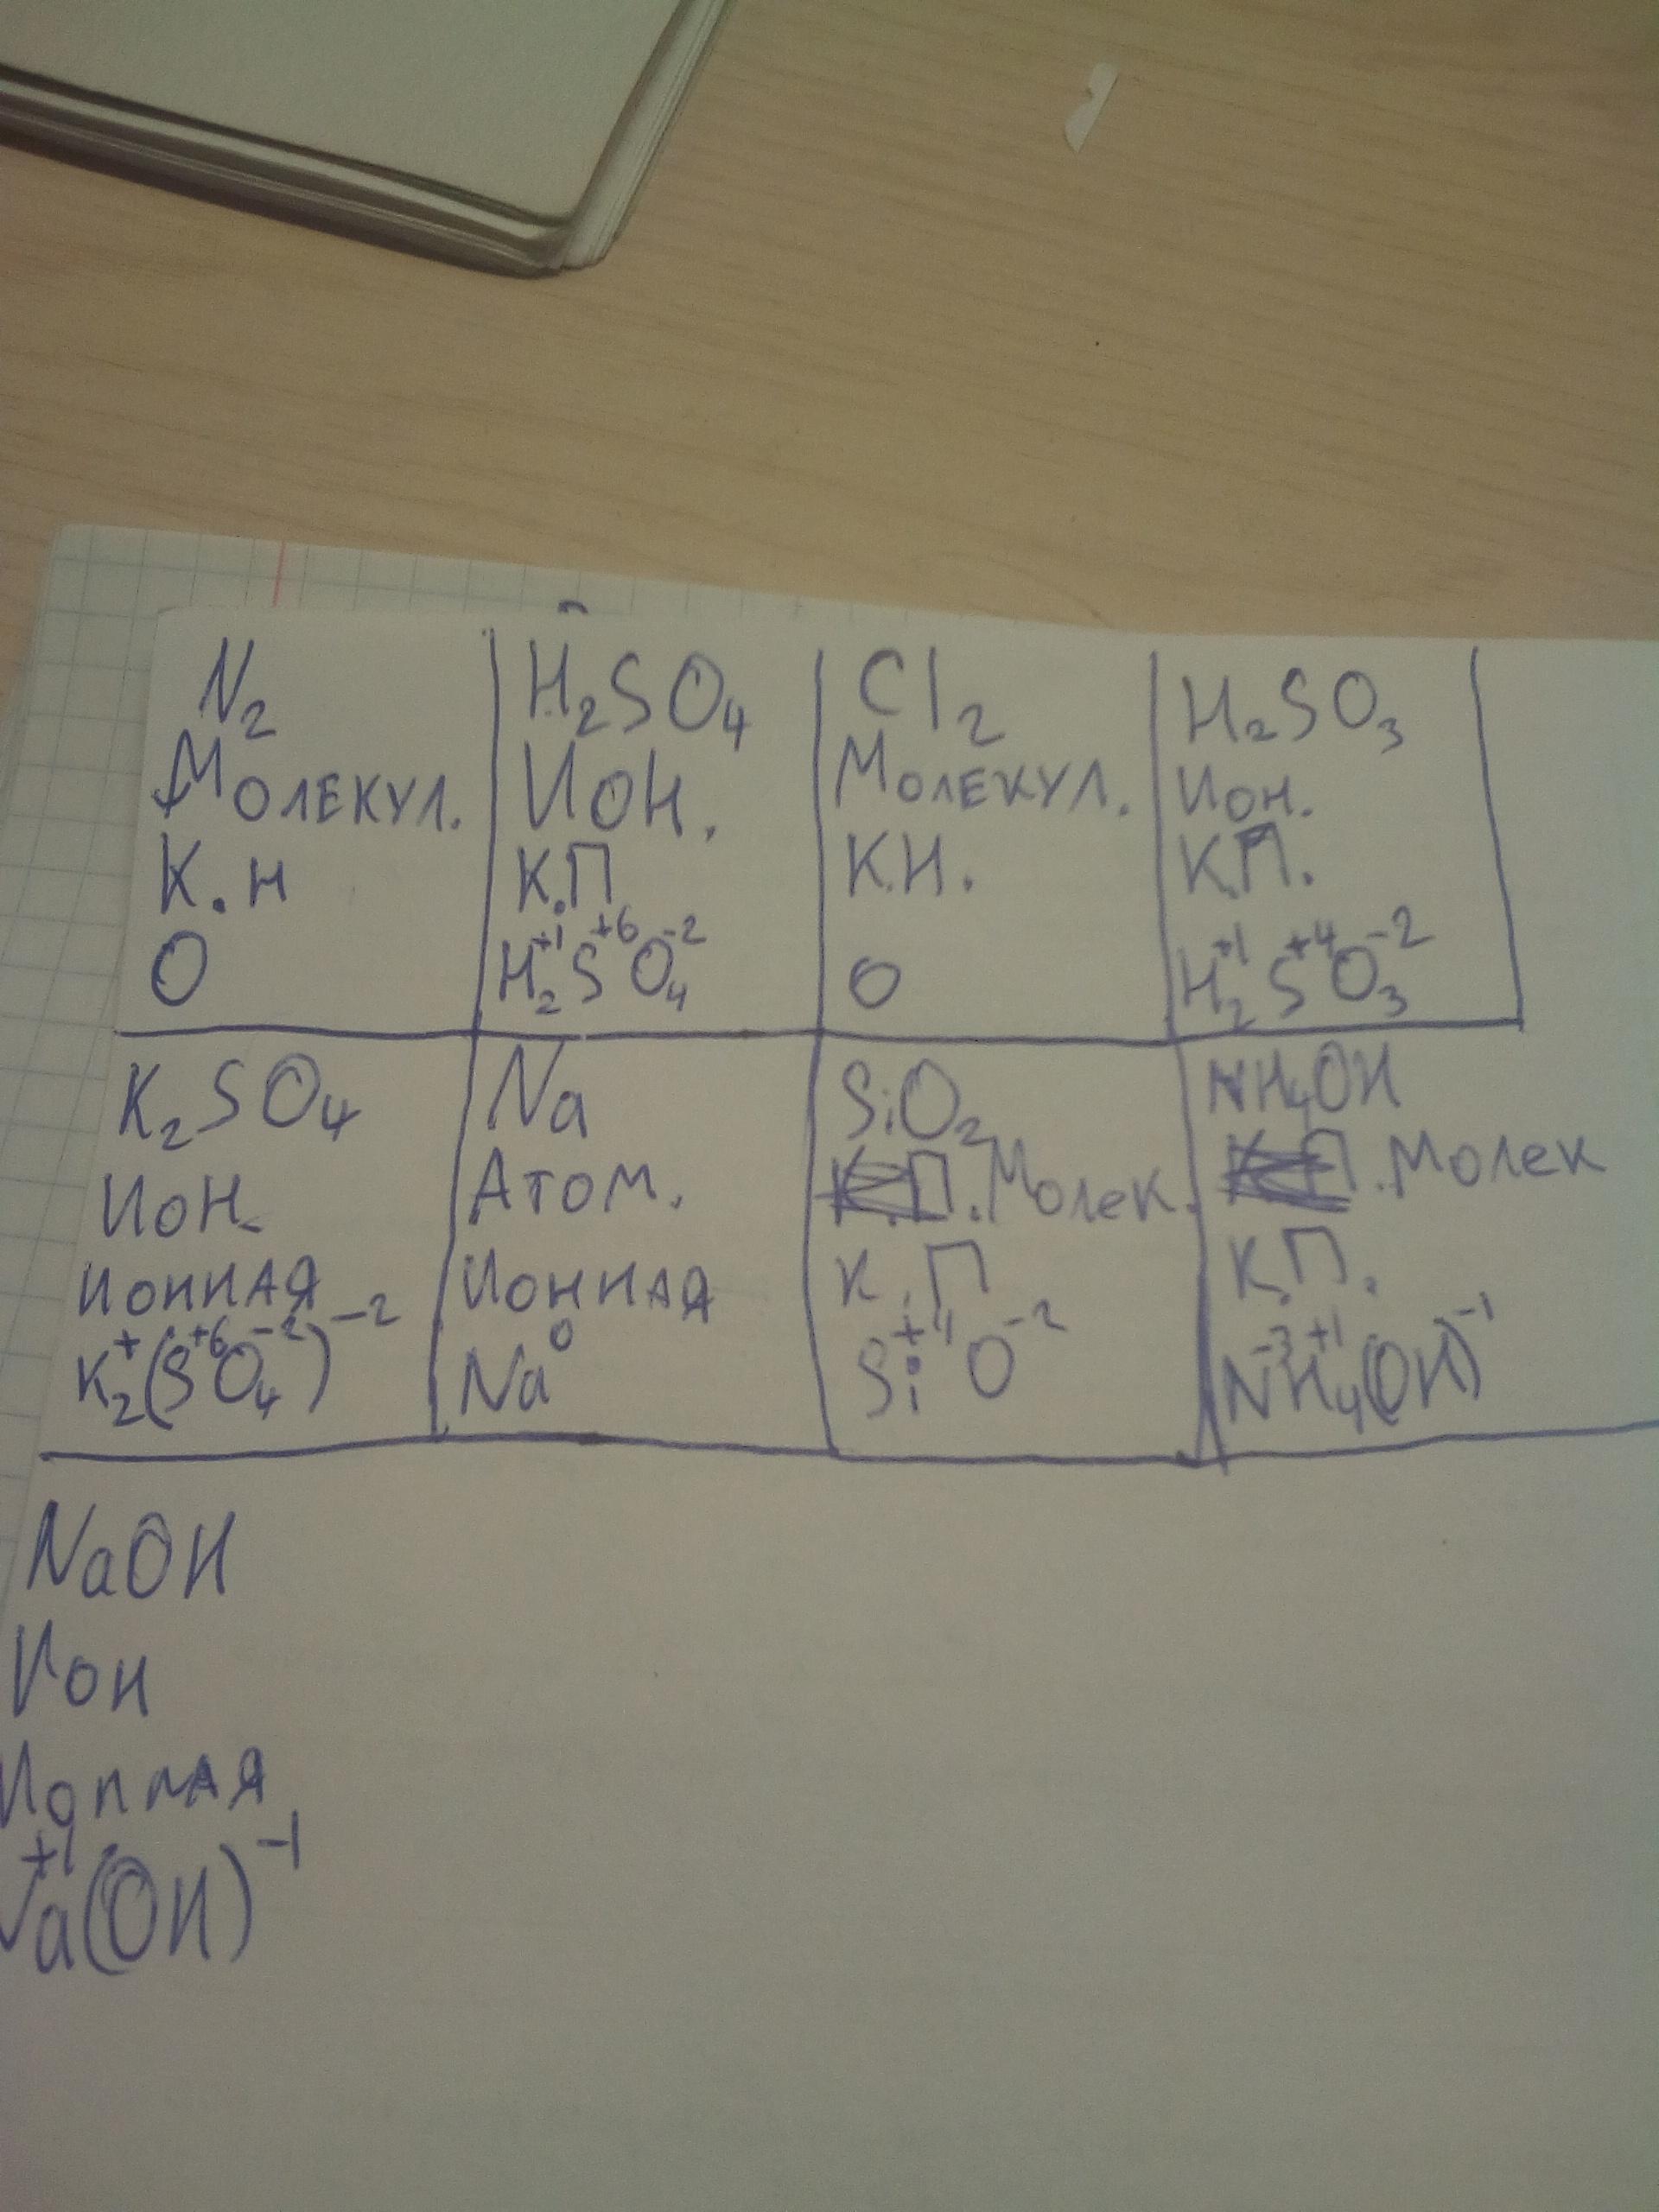 N₂
Молекул.
К.н
О
H₂SO₄
Ион.
К.П
H₂⁺¹S⁺⁶O₄⁻²
Cl₂
Молекул.
К.Н.
О
H₂SO₃
Ион.
К.П.
H₂⁺¹S⁺⁴O₃⁻²
K₂SO₄
Ион
Ионная
K₂⁺(S⁺⁶O₄⁻²)⁻²
Na
Атом.
Ионная
Na⁰
SiO₂
К.П. Молек.
К.П
Si⁺⁴O⁻²
NH₄OH
К.П. Молек
К.П.
N⁻³H₄⁺¹(OH)⁻¹
NaOH
Ион
Ионная
Na⁺¹(OH)⁻¹